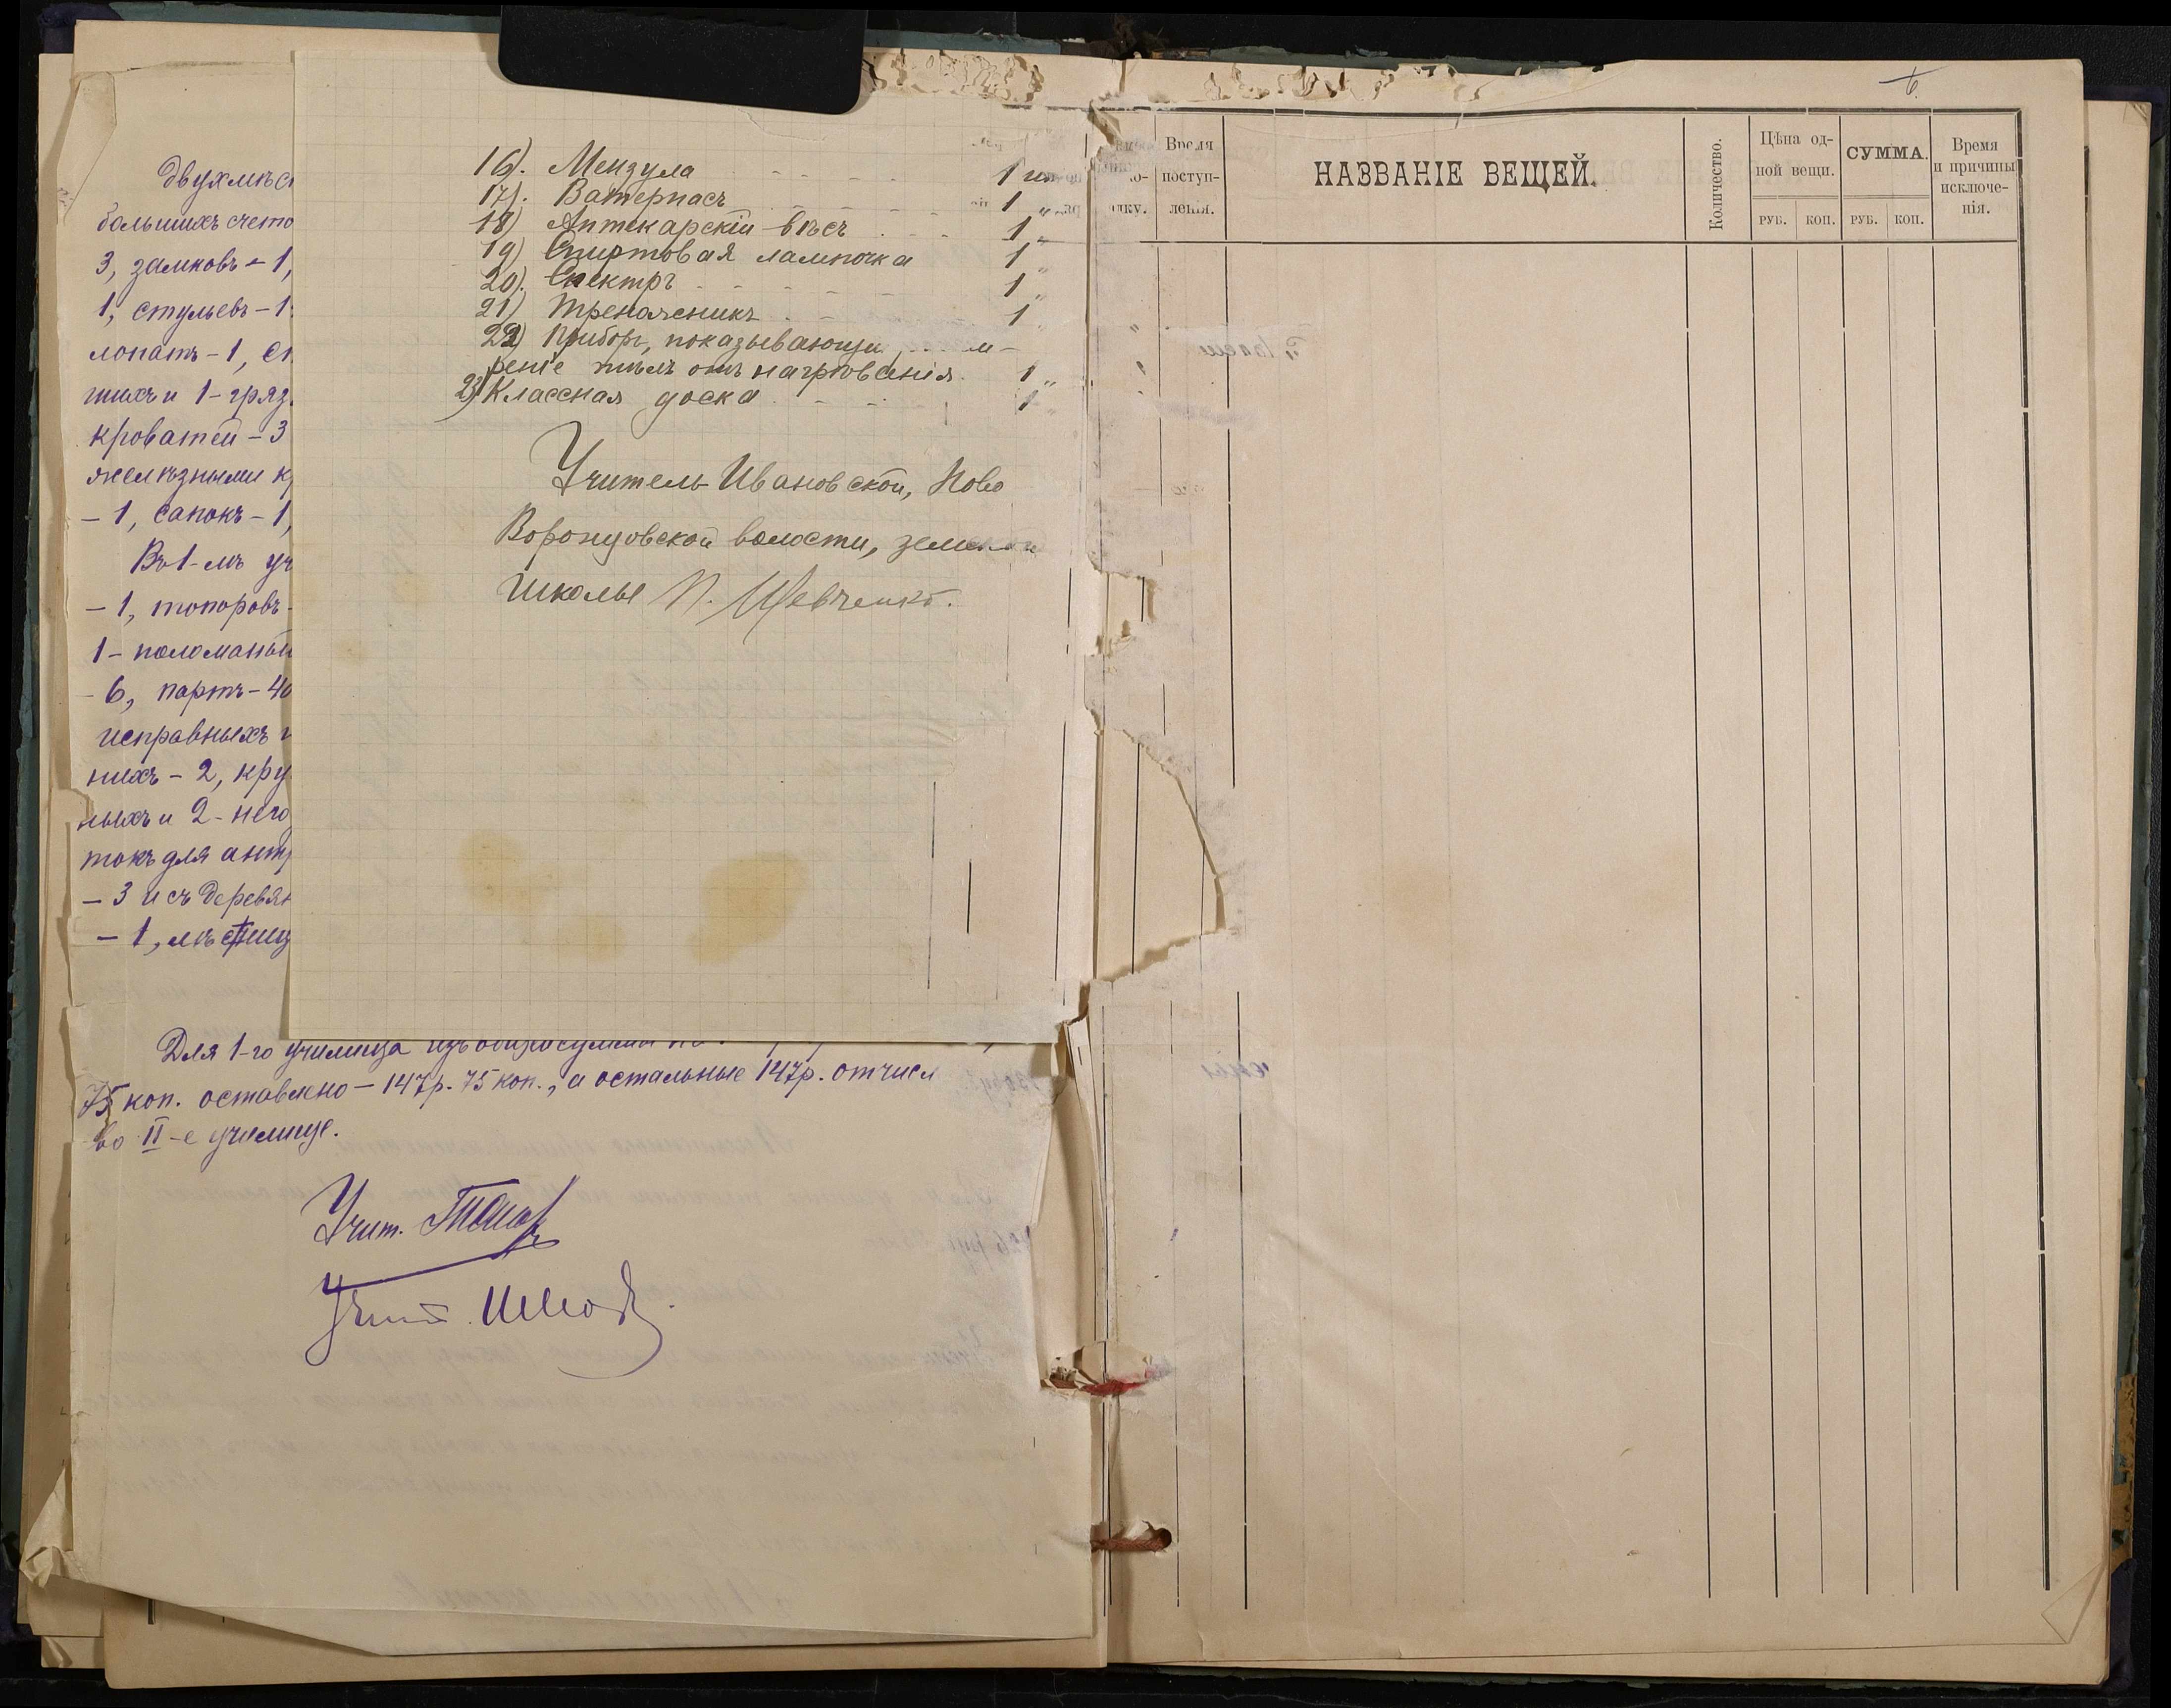 двухмѣс
большихъ счето
3, замковъ - 1,
1, стульевъ - 1
лопатъ - 1, ст
шихъ и 1 - гряз
кроватей - 3
желѣзными к
- 1, сапокъ - 1,
Въ 1-мъ уч
- 1, топоровъ -
1 - поломаный
- 6, партъ - 40
исправныхъ и
нихъ - 2, кру
ныхъ и 2 - него
токъ для ант
- 3 и съ деревян
- 1, лѣстниц
16). Мензула 1 шт
17). Ватерпасъ 1 "
18) Аптекарскій вѣсъ 1 "
19) Спиртовая лампочка 1 "
20). Спектръ 1 "
21) Треножникъ 1 "
22) Приборъ, показывающи
рение тѣлъ отъ нагрѣванія. 1 "
23) Классная доска 1 "
Учитель Ивановской, Ново
Воронцовской волости, земской
школы П. Шевченко.
Для 1-го училища изъ
75 коп. оставлено - 147р. 75 коп., а остальные 147р. отчисл
во II-е училище.
Учит.
Учит.
6.
Время
поступ-
ленія.
НАЗВАНІЕ ВЕЩЕЙ.
Количество.
Цѣна од-
ной вещи.
РУБ. КОП.
СУММА.
РУБ. КОП.
Время
и причины
исключе-
нія.